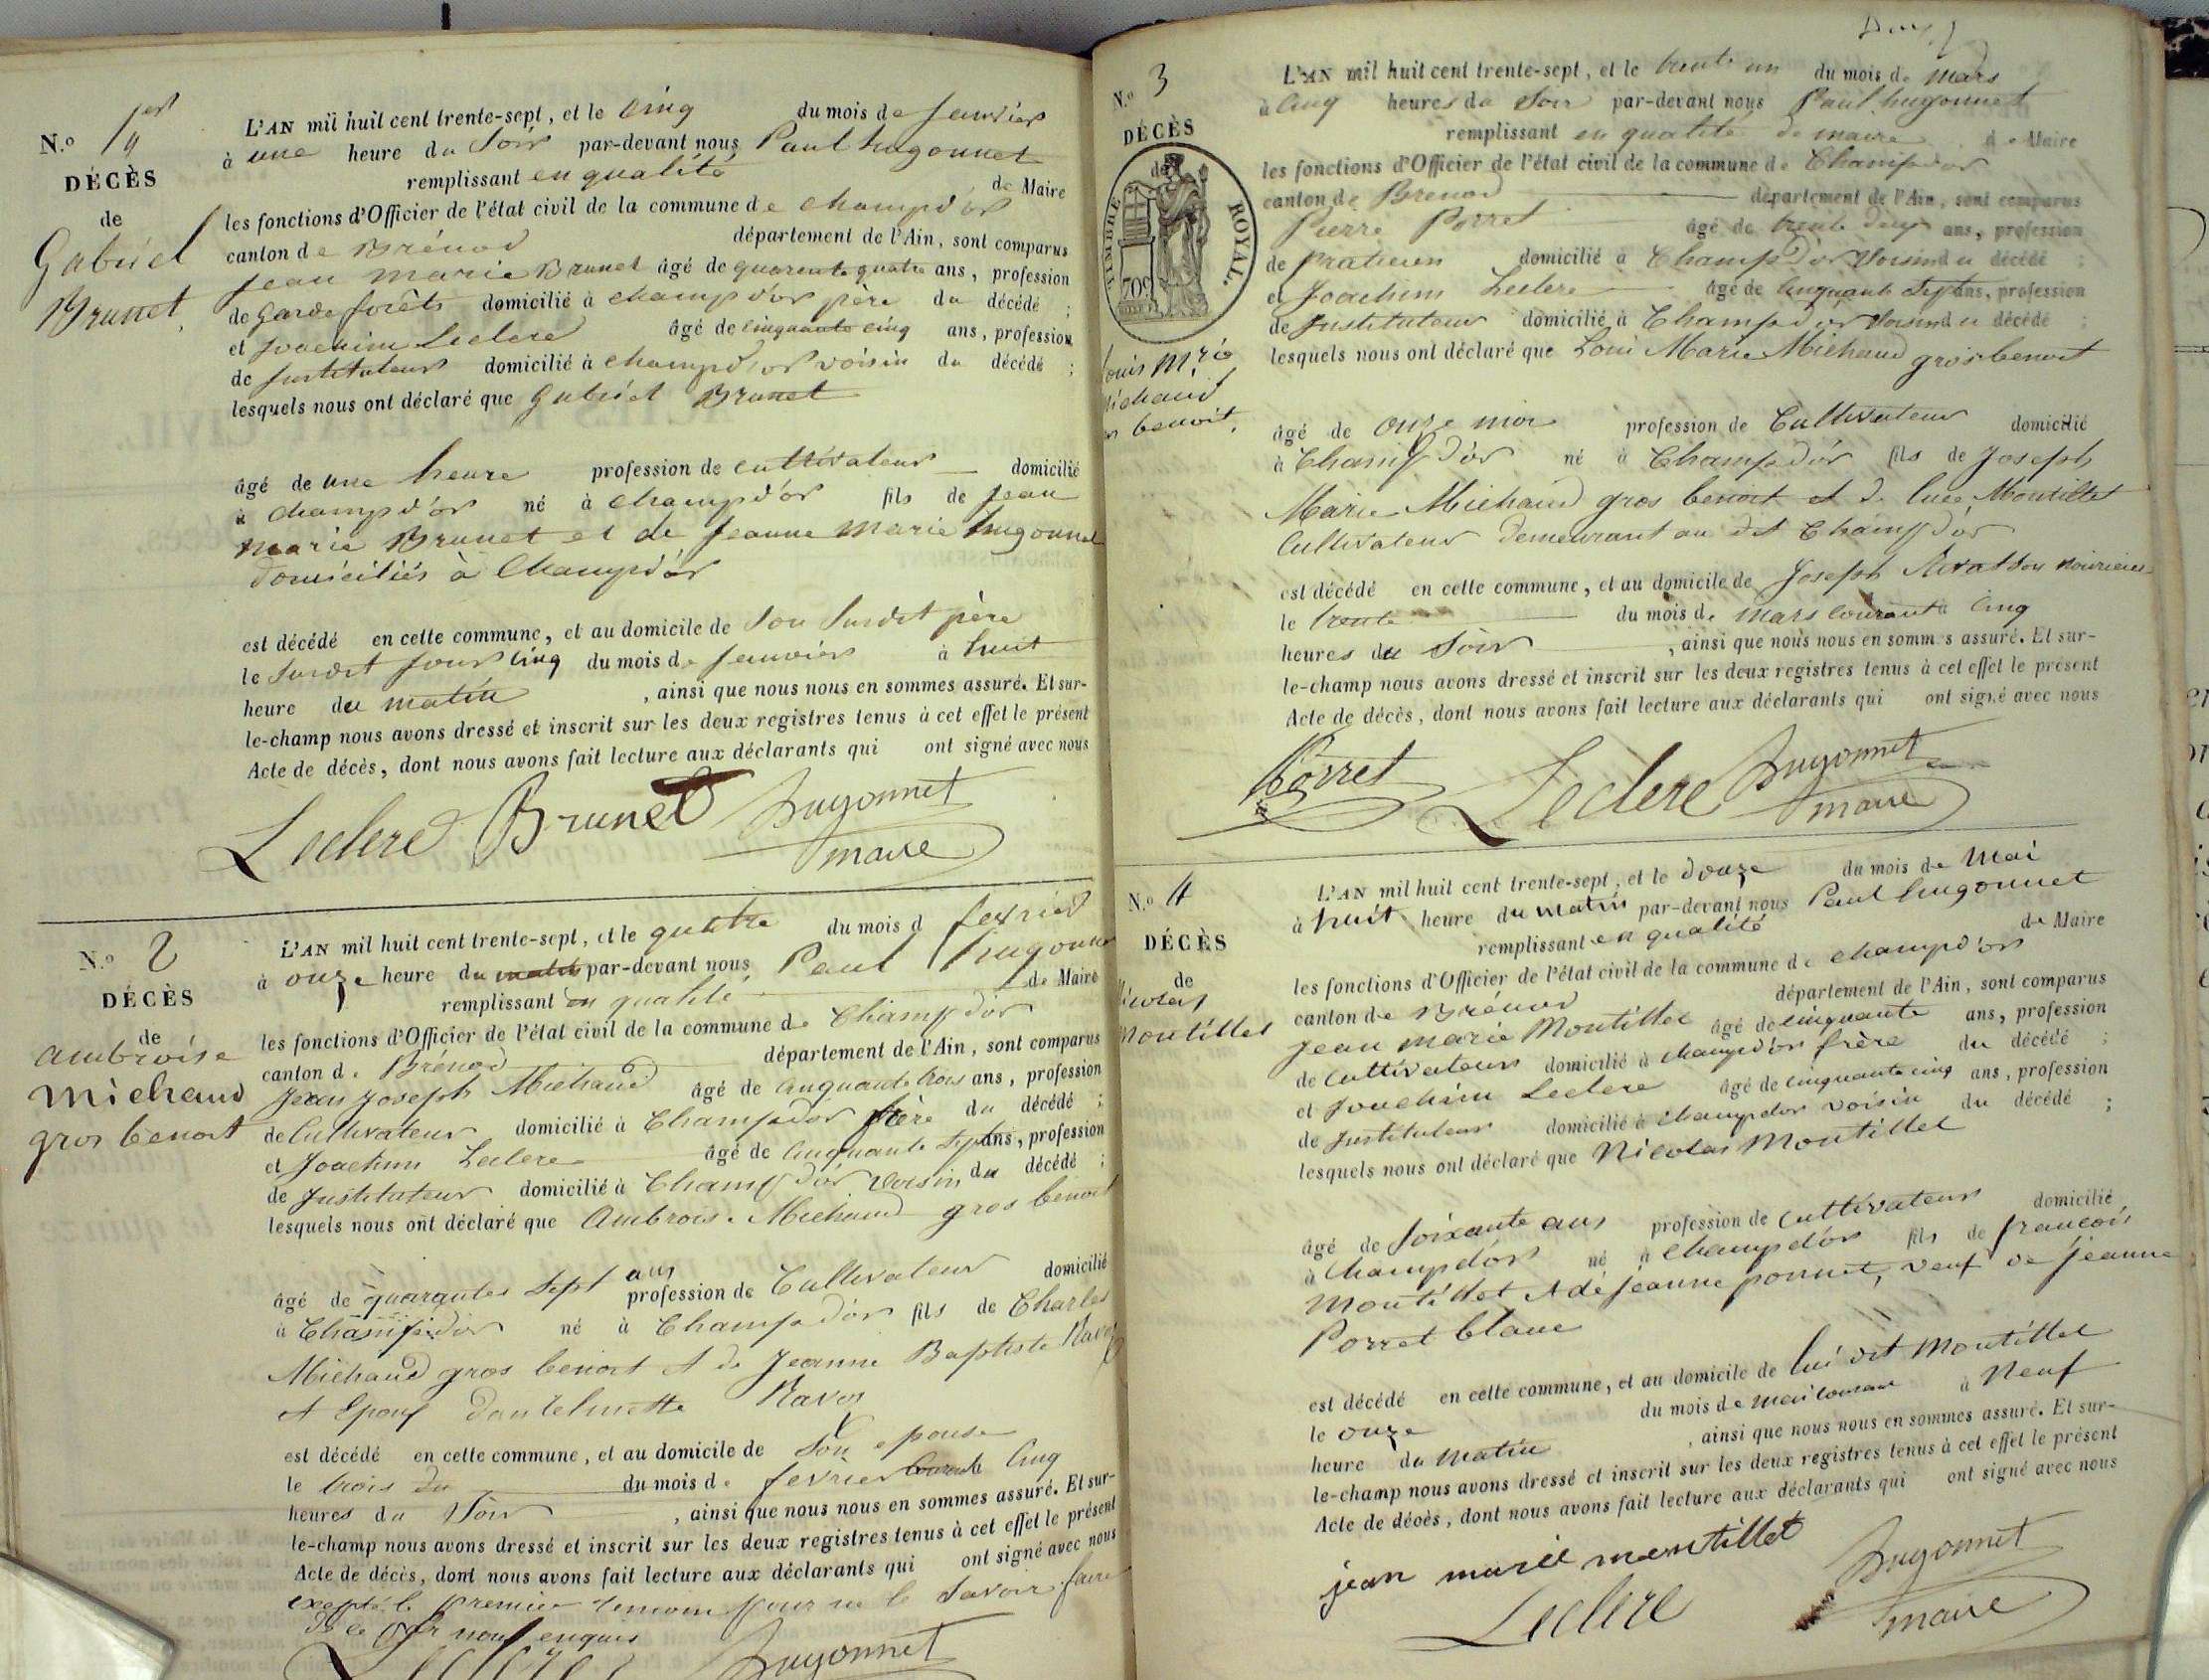 N.º 1er
DÉCÈS
de
Gabriel
Brunet.
L'AN mil huit cent trente-sept, et le cinq du mois de Janvier
à une heure du Soir par-devant nous Paul hugonnet
remplissant en qualité de Maire
les fonctions d'Officier de l'état civil de la commune de champd'or
canton de Brénod département de l'Ain, sont comparus
Jean marie Brunet âgé de quarente quatre ans, profession
de Garde forêts domicilié à champd'or père du décédé ;
et Joachim Leclerc âgé de cinquante cinq ans, profession
de Instituteur domicilié à champd'or voisin du décédé ;
lesquels nous ont déclaré que Gabriel Brunet
âgé de une heure profession de cultivateur domicilié
à champd'or né à champd'or fils de Jean
marie Brunet et de Jeanne marie hugonnet
domiciliés à Champd'or
est décédé en cette commune, et au domicile de Son Susdit père
le Susdit Jour cinq du mois de Janvier à huit
heure du matin , ainsi que nous nous en sommes assuré. Et sur-
le-champ nous avons dressé et inscrit sur les deux registres tenus à cet effet le présent
Acte de décès, dont nous avons fait lecture aux déclarants qui ont signé avec nous
Leclerc Brunet hugonnet
maire
N.º 2
DÉCÈS
de
ambroise
Michaud
gros benoit
L'AN mil huit cent trente-sept, et le quatre du mois d fevrier
à onze heure du matin par-devant nous Paul hugonnet
remplissant en qualité de Maire
les fonctions d'Officier de l'état civil de la commune de Champd'or
canton de Brénod département de l'Ain, sont comparus
Jean Joseph Michaud âgé de cinquante trois ans, profession
de Cultivateur domicilié à Champd'or frère du décédé ;
et Joachim Leclerc âgé de cinquante sept ans, profession
de Instituteur domicilié à Champd'or voisin du décédé ;
lesquels nous ont déclaré que Ambroise Michaud gros benoit
âgé de quarantes sept ans profession de Cultivateur domicilié
à Champd'or né à Champd'or fils de Charles
Michaud gros benoit et de Jeanne Baptiste Ravoy
et Epoux Ravoy
est décédé en cette commune, et au domicile de Son epouse
le trois du du mois de fevrier courant cinq
heures du Soir , ainsi que nous nous en sommes assuré. Et sur-
le-champ nous avons dressé et inscrit sur les deux registres tenus à cet effet le présent
Acte de décès, dont nous avons fait lecture aux déclarants qui ont signé avec nous
excepté le premier temoin pour ne le Savoir faire
de ce enquis
Leclerc hugonnet
N.º 3
DÉCÈS
de
TIMBRE ROYAL.
Louis Mrie
Michaud
gros benoit.
L'AN mil huit cent trente-sept, et le trente un du mois de mars
à cinq heures du Soir par-devant nous Paul hugonnet
remplissant en qualité de maire de Maire
les fonctions d'Officier de l'état civil de la commune de Champd'or
canton de Brenod département de l'Ain, sont comparus
Pierre Porret âgé de trente deux ans, profession
de praticien domicilié à Champd'or voisin du décédé ;
et Joachim Leclerc âgé de cinquante Sept ans, profession
de Instituteur domicilié à Champd'or voisin du décédé ;
lesquels nous ont déclaré que Loui Marie Michaud gros benoit
âgé de onze moi profession de Cultivateur domicilié
à Champd'or né à Champd'or fils de Joseph
Marie Michaud gros benoit et de luce Montillet
Cultivateur demeurant au dit Champd'or
est décédé en cette commune, et au domicile de Joseph
le trente du mois de mars courant à Cinq
heures du Soir , ainsi que nous nous en sommes assuré. Et sur-
le-champ nous avons dressé et inscrit sur les deux registres tenus à cet effet le présent
Acte de décès, dont nous avons fait lecture aux déclarants qui ont signé avec nous
Porret Leclerc hugonnet
maire
N.º 4
DÉCÈS
de
Nicolas
Montillet
L'AN mil huit cent trente-sept, et le douze du mois de Mai
à huit heure du matin par-devant nous Paul hugonnet
remplissant en qualité de Maire
les fonctions d'Officier de l'état civil de la commune de champd'or
canton de Brénod département de l'Ain, sont comparus
Jean marie Montillet âgé de cinquante ans, profession
de cultivateur domicilié à champd'or frère du décédé ;
et Joachim Leclerc âgé de cinquante cinq ans, profession
de Instituteur domicilié à champdor voisin du décédé ;
lesquels nous ont déclaré que Nicolas Montillet
âgé de Soixante ans profession de cultivateur domicilié
à champd'or né à Champd'or fils de francois
Montillet et de jeanne ponnet, veuf de jeanne
Porret blanc
est décédé en cette commune, et au domicile de lui dit Montillet
le onze du mois de mai courant à Neuf
heure du matin , ainsi que nous nous en sommes assuré. Et sur-
le-champ nous avons dressé et inscrit sur les deux registres tenus à cet effet le présent
Acte de décès, dont nous avons fait lecture aux déclarants qui ont signé avec nous
jean marie montillet hugonnet
Leclerc maire